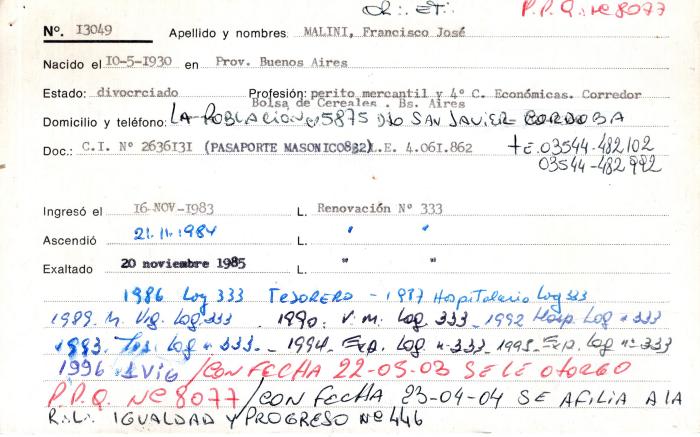 Or∴ Et∴ P.P.Q. Nº 8077
Nº. 13049 Apellido y nombres MALINI, Francisco José
Nacido el 10-5-1930 en Prov. Buenos Aires
Estado: divocrciado Profesión: perito mercantil y 4º C. Económicas. Corredor
Bolsa de Cereales . Bs. Aires
Domicilio y teléfono: LA POBLACION 5875 DTO SAN JAVIER CORDOBA
Doc.: C.I. Nº 2636131 (PASAPORTE MASONICO832) L.E. 4.061.862 TE. 03544-482102
03544-482992
Ingresó el 16-NOV-1983 L. Renovación Nº 333
Ascendió 21.11.1984 L. " "
Exaltado 20 noviembre 1985 L. " "
1986 Log 333 TESORERO - 1987 Hospitalario Log 333
1989. M. Vig. Log. 333 . 1990. V.M. Log 333 - 1992 Hosp. Log n 333
1993. Log n 333. - 1994. Exp. Log n-333 - 1995- Exp. Log nº 333
1996 1 VIG / CON FECHA 22-05-03 SE LE OTORGO
P.P.Q. Nº 8077 / CON FECHA 23-04-04 SE AFILIA A LA
R∴L∴ IGUALDAD Y PROGRESO Nº 446